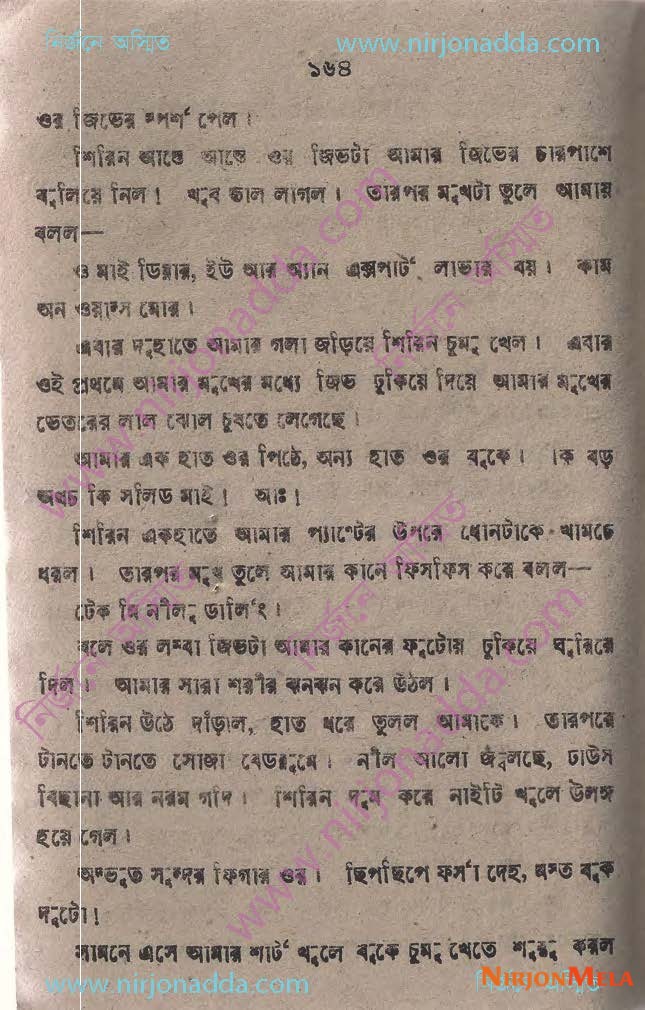 নির্জনে অস্মিত www.nirjonadda.com
১৬৪
ওর জিভের স্পর্শ পেল।
শিরিন আস্তে আস্তে ওর জিভটা আমার জিভের চারপাশে
বুলিয়ে নিল! খুব ভাল লাগল। তারপর মুখটা তুলে আমায়
বলল—
ও মাই ডিয়ার, ইউ আর অ্যান এক্সপার্ট লাভার বয়। কাম
অন ওয়ান্স মোর।
এবার দুহাতে আমার গলা জড়িয়ে শিরিন চুমু খেল। এবার
ওই প্রথমে আমার মুখের মধ্যে জিভ ঢুকিয়ে দিয়ে আমার মুখের
ভেতরের লাল ঝোল চুষতে লেগেছে।
আমার এক হাত ওর পিঠে, অন্য হাত ওর বুকে। কি বড়
অথচ কি সলিড মাই! আঃ!
শিরিন একহাতে আমার প্যান্টের উপরে ধোনটাকে খামচে
ধরল। তারপর মুখ তুলে আমার কানে ফিসফিস করে বলল—
টেক মি নীলু ডার্লিং।
বলে ওর লম্বা জিভটা আমার কানের ফুটোয় ঢুকিয়ে ঘুরিয়ে
দিল। আমার সারা শরীর ঝনঝন করে উঠল।
শিরিন উঠে দাঁড়াল, হাত ধরে তুলল আমাকে। তারপরে
টানতে টানতে সোজা বেডরুমে। নীল আলো জ্বলছে, ঢাউস
বিছানা আর নরম গদি। শিরিন দুম করে নাইটি খুলে উলঙ্গ
হয়ে গেল।
অদ্ভুত সুন্দর ফিগার ওর। ছিপছিপে ফর্সা দেহ, মস্ত বুক
দুটো!
সামনে এসে আমার শার্ট খুলে বুকে চুমু খেতে শুরু করল
www.nirjonadda.com NIRJONMELA
www.nirjonadda.com নির্জনে অস্মিত
নির্জনে অস্মিত www.nirjonadda.com
নির্জনে অস্মিত